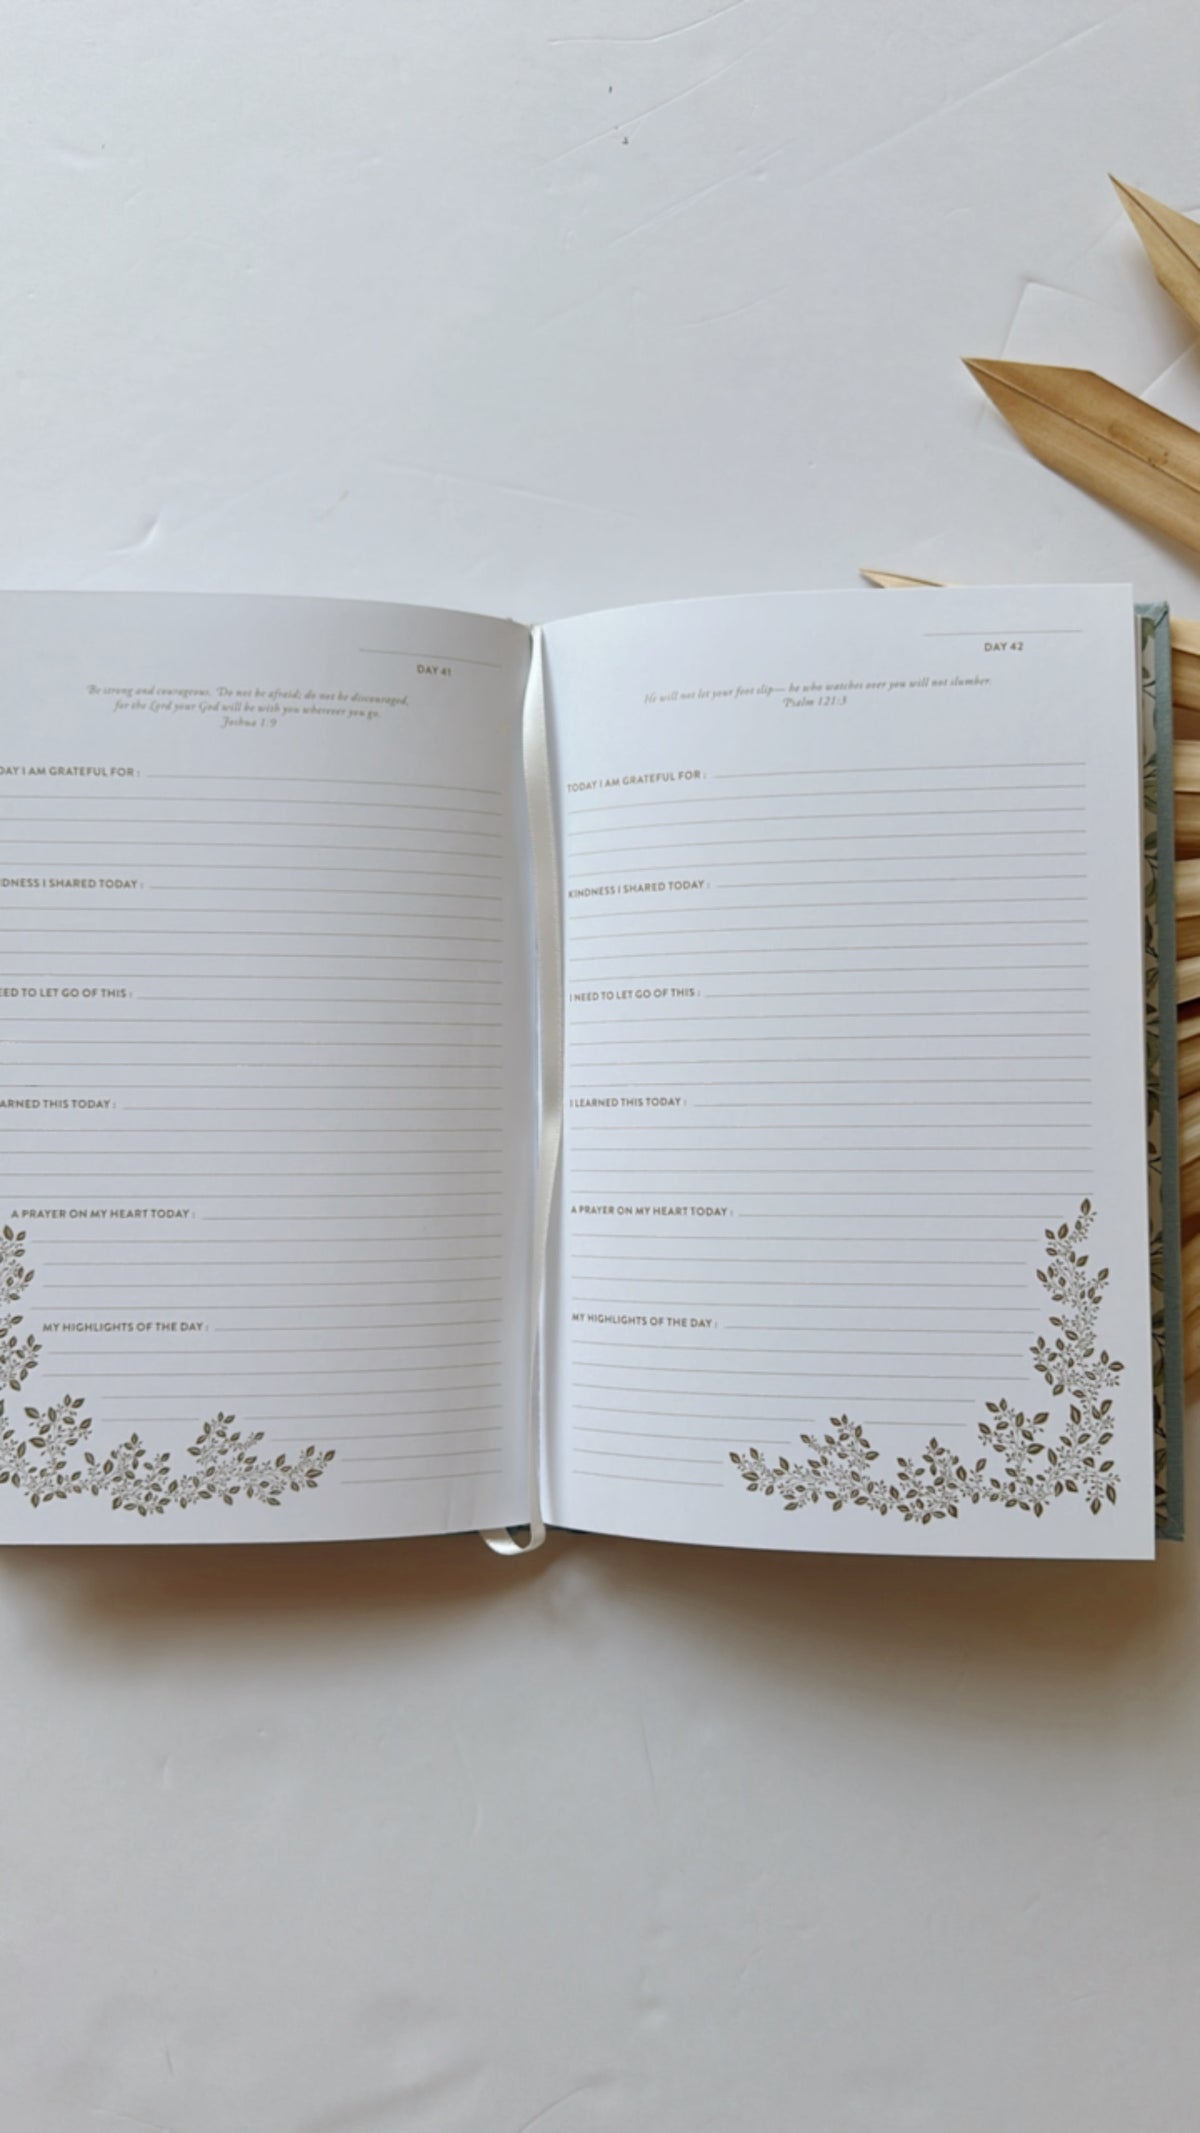 DAY 41
Be strong and courageous. Do not be afraid; do not be discouraged,
for the Lord your God will be with you wherever you go.
Joshua 1:9
DAY I AM GRATEFUL FOR :
DNESS I SHARED TODAY :
EED TO LET GO OF THIS :
ARNED THIS TODAY :
A PRAYER ON MY HEART TODAY :
MY HIGHLIGHTS OF THE DAY :
DAY 42
He will not let your foot slip— he who watches over you will not slumber.
Psalm 121:3
TODAY I AM GRATEFUL FOR :
KINDNESS I SHARED TODAY :
I NEED TO LET GO OF THIS :
I LEARNED THIS TODAY :
A PRAYER ON MY HEART TODAY :
MY HIGHLIGHTS OF THE DAY :